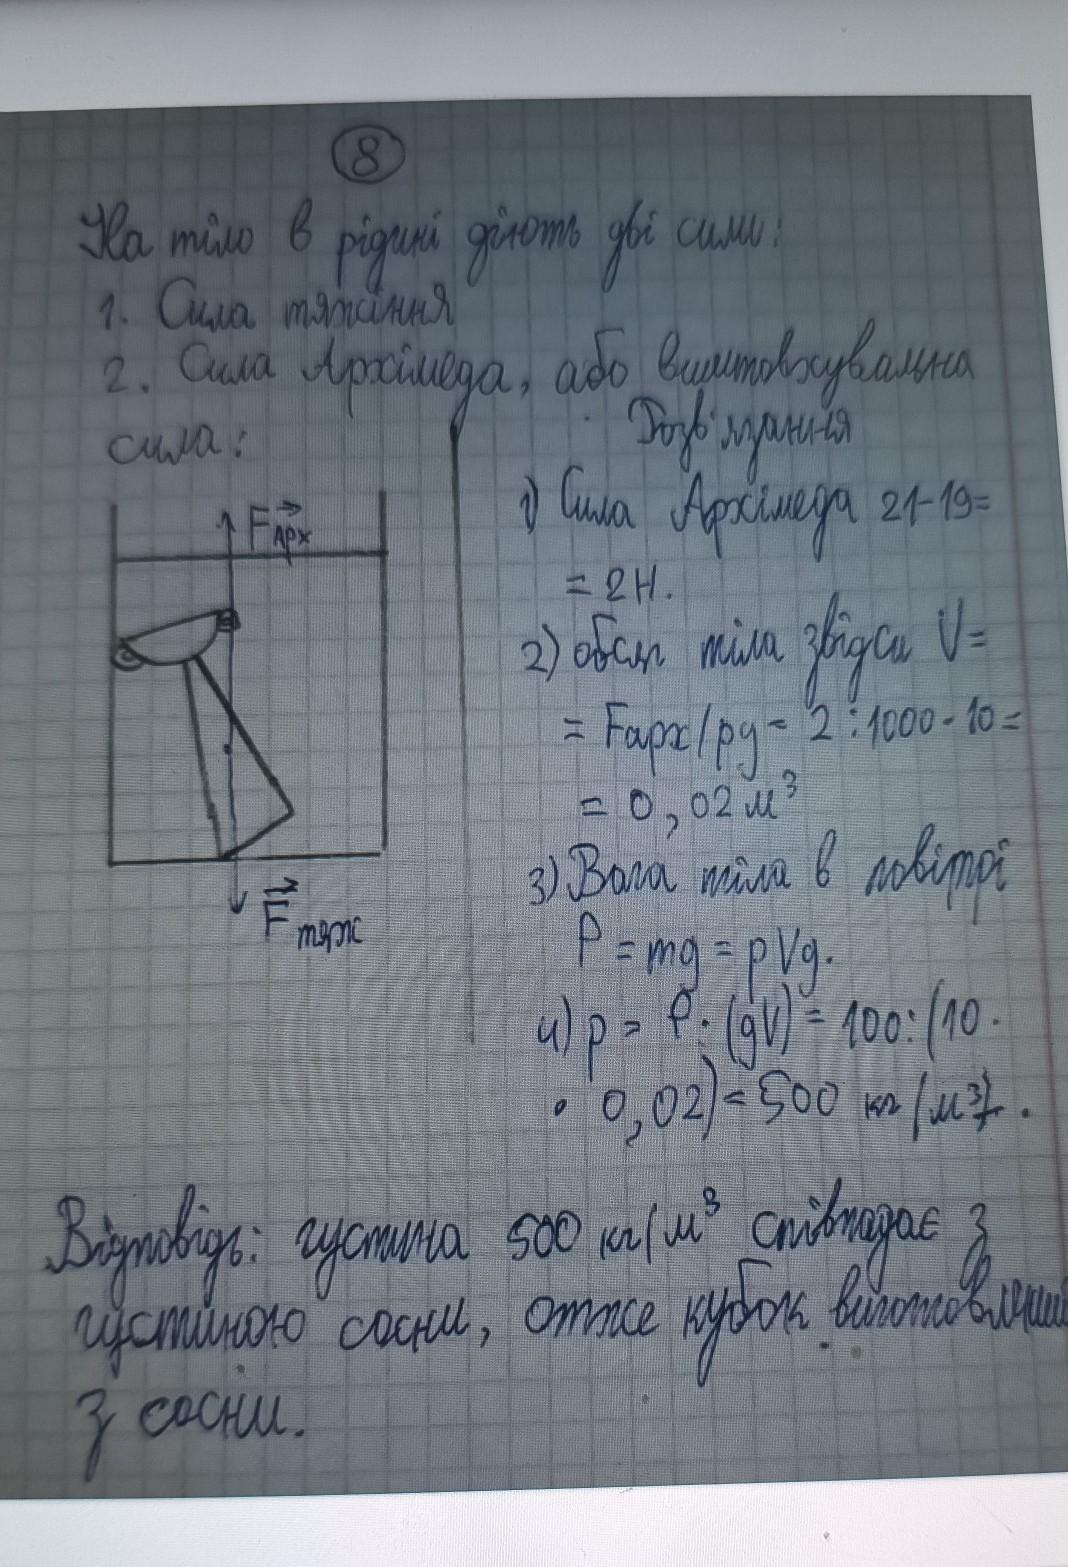 8
На тіло в рідині діють дві сили:
1. Сила тяжіння
2. Сила Архімеда, або виштовхувальна
сила:
Розв'язання
F Арх
1) Сила Архімеда 21-19=
= 2Н.
2) обєм тіла звідси V=
= Fарх/pg = 2 : 1000 · 10 =
= 0,02 м³
3) Вага тіла в повітрі
P = mg = pVg.
F тяж
4) p = P : (gV) = 100 : (10 ·
· 0,02) = 500 кг/м³.
Відповідь: густина 500 кг/м³ співпадає з
густиною сосни, отже кубок виготовлений
з сосни.